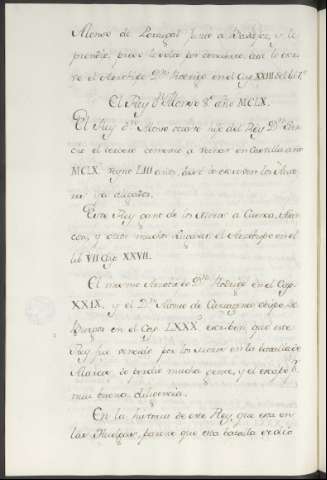 Alonso de Portugal junto a Badajoz, y le
prendió, pues le soltó con que lo escri-
ve el Arzobispo Dn Rodrigo en el Cap. XXIII del lib. 7º
El Rey Dn Alonso 8º año MCLX.
El Rey Dn Alonso octavo hijo del Rey Dn San-
cho el tercero comenzó a reinar en Castilla año
MCLX. reynó LIII años,
Este Rey ganó de los Moros a Cuenca, Alar-
con, y otros muchos lugares. el Arzobispo en el
lib. VII Cap. XXVII.
El mismo Arzobispo Dn Rodrigo en el Cap.
XXIX, y el Dn Alonso de Cartagena obispo de
Burgos en el Cap. LXXX escriben que este
Rey fue vencido por los Moros en la batalla de
Alarcos, do perdió mucha gente, y el escapó
muy buena diligencia.
En la historia de este Rey, que esta en
las Huelgas, parece que esta batalla se dió